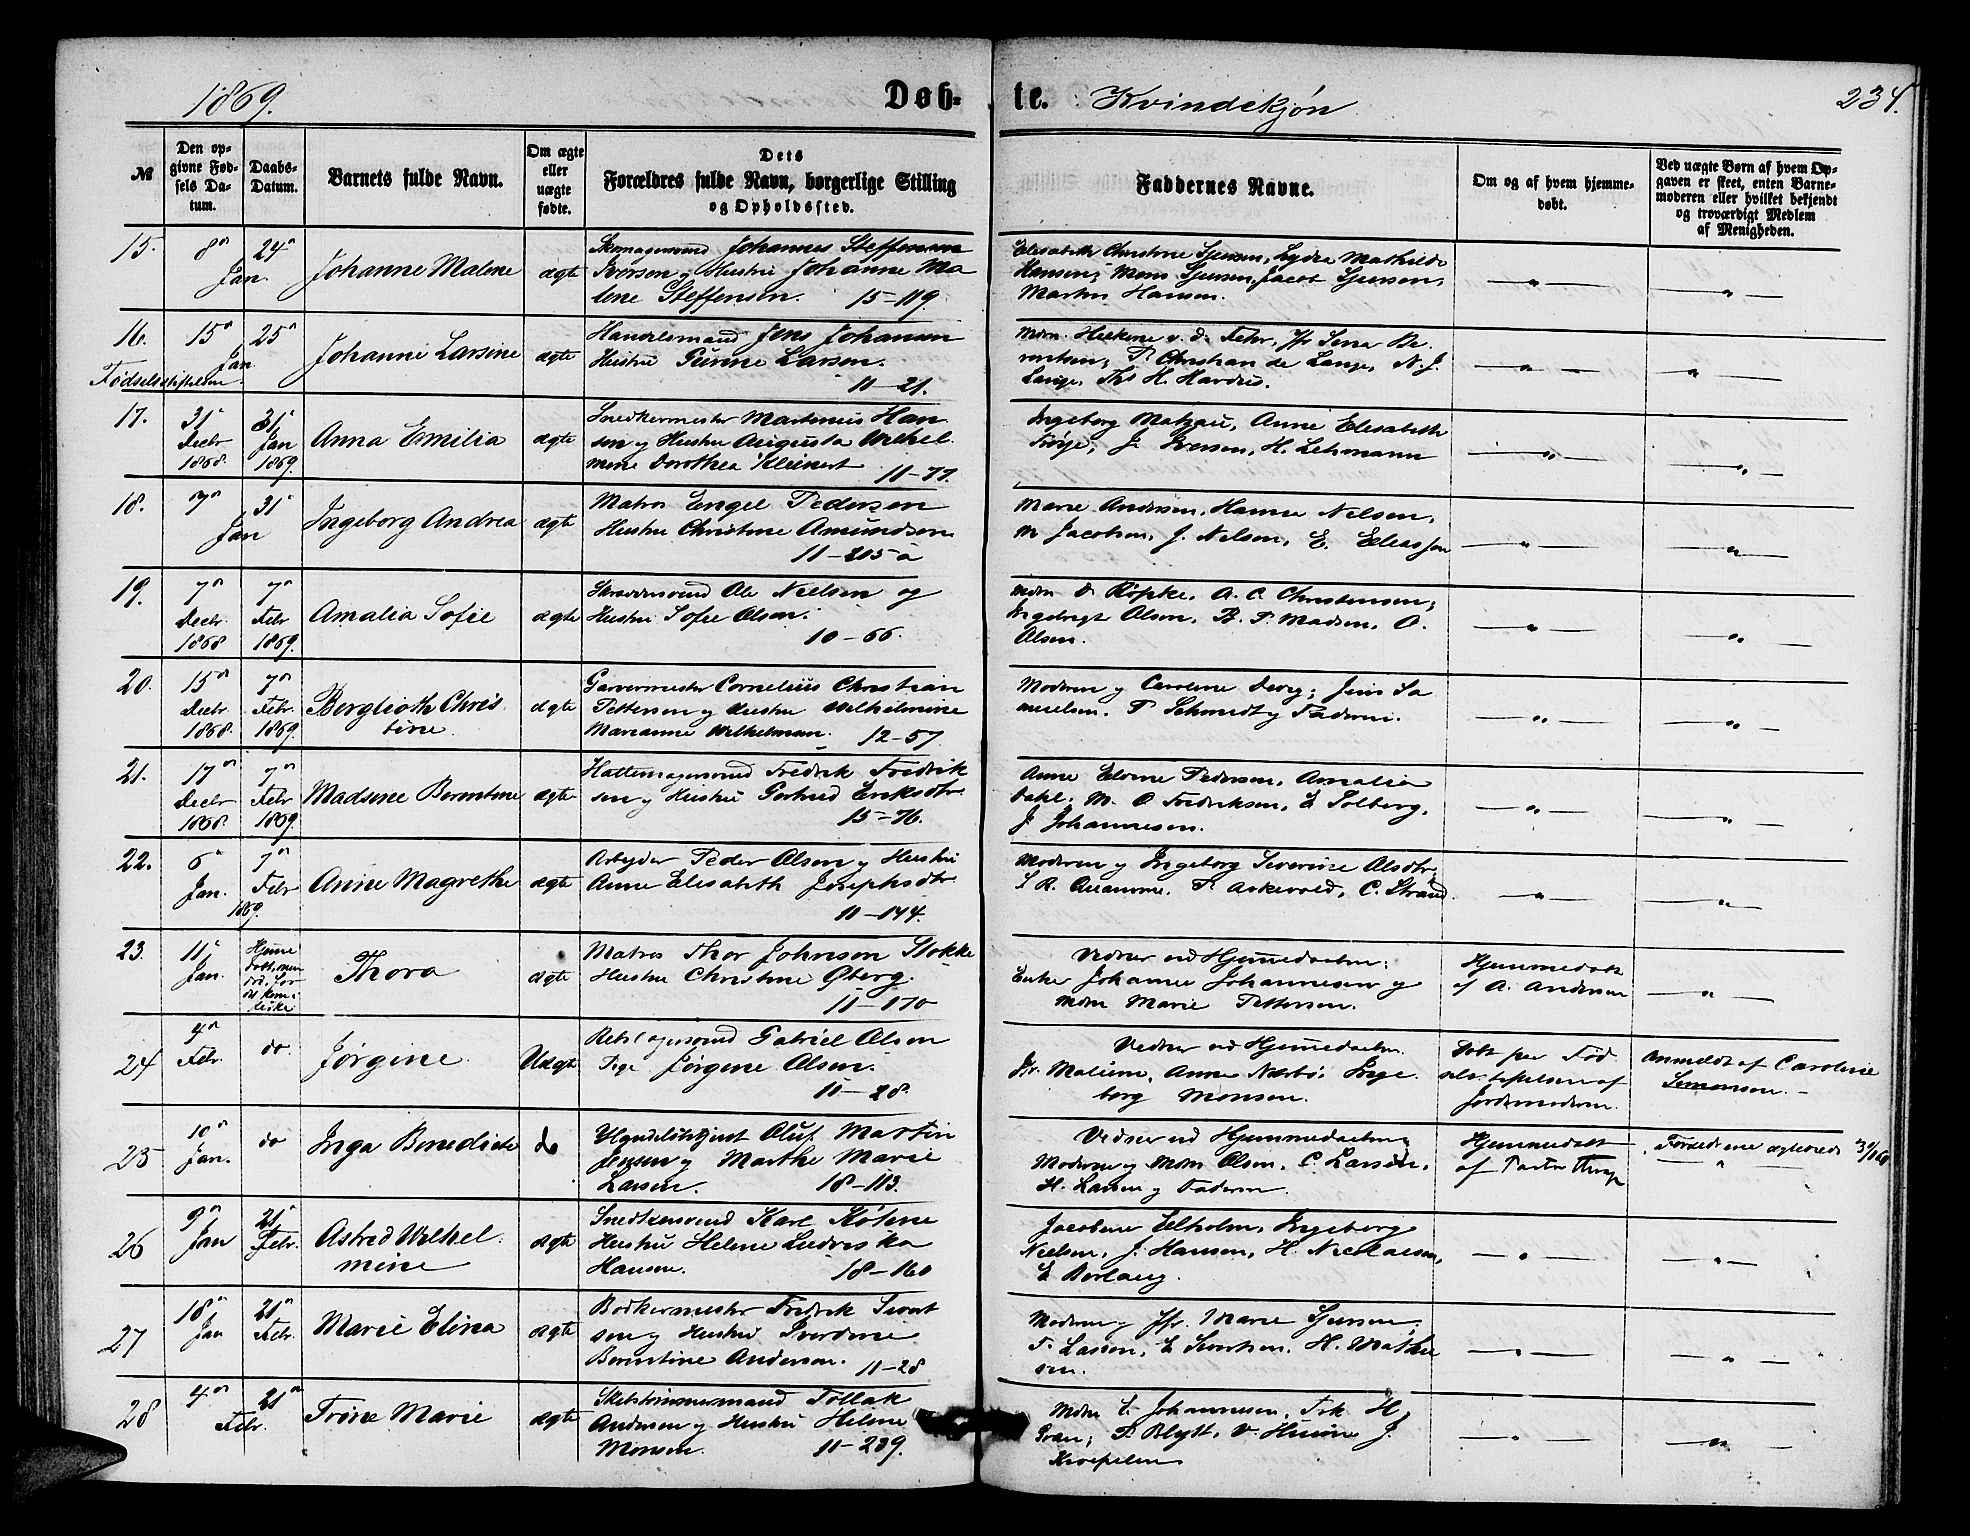 1869.
Døb-
te.
Kvindekjøn
234.
№
Den op-
givne Fød-
sels Da-
tum.
Daabs-
Datum.
Barnets fulde Navn.
Om ægte
eller
uægte
fødte.
Dets
Forældres fulde Navn, borgerlige Stilling
og Opholdssted.
Faddernes Navne.
Om og af hvem hjemme-
døbt.
Ved uægte Børn af hvem Op-
gaven er skeet, enten Barne-
moderen eller hvilket bekjendt
og troværdigt Medlem
af Menigheden.
15.
8
24
Jan.
Johanne Malene
ægte
Skomagersvend Johannes Steffensen
Iversen og Hustru Johanne Ma
lene Steffensen. 15-119.
Elisabeth Christine Sjursen, Lydia Mathilde
Hansen; Mons Sjursen, Jacob Sjursen,
Martin Hansen.
16.
15
25
Jan.
Fødselsstiftelsen.
Johanne Larsine
ægte
Handelsmand Jens Johansen
Hustru Gurine Larsen.
11-21.
Mdm. Helkene v. d. Fehr, Jfr Sena Be
rentsen; P. Christian de Lange, N. J.
Lange, Ths H. Hardus.
17.
31
Decbr
1868.
31
Jan
1869.
Anna Emilia
ægte
Snedkermester Martinus Han
sen og Hustru Augusta Wilhel
mine Dorothea Kleinert 11-77.
Ingeborg Matzau, Anne Elisabeth
J. Iversen, H. Lehmann
18.
7
31
Jan
Ingeborg Andrea
ægte
Matros Engel Pedersen
Hustru Christine Amundsen
11-205 a
Marie Andersen, Hanne Nilsen,
M Jacobsen, J. Nilsen, E. Eliassen
19.
7
Decbr.
1868
7
Febr
1869.
Amalia Sofie
ægte
Skræddersvend Ole Nielsen og
Hustru Sofie Olsen.
10-66.
Mdm D. Røpke, A. C. Christensen;
Ingebregt Olsen, B. P. Madsen, O.
Olsen.
20.
15
Decbr
1868.
7
Febr
1869.
Berglioth Chris
tine.
ægte
Garvermester Cornelius Christian
Pettersen og Hustru Wilhelmine
Marianne Wilhelmsen. 12-57.
Moderen og Caroline Devig; Jens Sa
muelsen. P Schmidt og Faderen.
21.
17
Decbr
1868.
7
Febr
1869.
Madsine Berentine
ægte
Hattemagersvend Fredrik Fredrik
sen og Hustru Gertrud Eriksdtr.
15-76.
Anne Elvine Pedersen, Amalia
Dahl; M. O Fredriksen, E Solberg,
J. Johannesen.
22.
6
Jan.
7
Febr
1869.
Anne Magrethe
ægte
Arbejder Peder Olsen og Hustru
Anne Elisabeth Josephsdtr
11-144.
Moderen og Ingeborg Severine Olsdtr,
S R. Anamme, P. Askevold, C. Strand.
23.
11
Jan.
Hjemme
Thora
ægte
Matros Thor Johnson Stokke
Hustru Christine Øberg.
11-170
Vidner ved Hjemmedaaben:
Enke Johanne Johannesen og
Mdm Marie Pettersen.
Hjemmedøbt
af A. Andersen
24
4
Febr.
do.
Jørgine.
Uægte
Rebslagersvend Gabriel Olsen
Pige Jørgine Olsen.
11-28.
Vidner ved Hjemmedaaben.
Jfr. Malum, Anne Nærbø, Inge
borg Monsen.
Døbt paa Fød
selsstiftelsen af
Jordemoderen.
Anmeldt af Caroline
Simonsen.
25
10
Jan.
do
Inga Benedicte
do
Handelsbetjent Oluf Martin
Jensen og Marthe Marie
Larsen. 18-113.
Vidner ved Hjemmedaaben;
Moderen og Mdm Olsen, C. Larsen,
H. Larsen og Faderen.
Hjemmedøbt
af Pastor
Forældrene ægteviede
26
9
Jan
21
Febr.
Astred Wilhel
mine
ægte
Snedkersvend Karl Køhne
Hustru Helene Ludvikka
Hansen. 18-160
Jacobine Elholm, Ingeborg
Nielsen, J. Hansen, H. Nicolaisen,
E Borlaug.
27
18
Jan
21
Febr.
Marie Elina
ægte
Bødkermester Fredrik Sivert
sen og Hustru Sverdine
Berentine Andersen. 11-28
Moderen og Jfr. Marie Sjursen,
T. Lassen, E Sivertsen, H. Mathie
sen.
28
4
21
Febr.
Trine Marie
ægte
Skibstømmermand Tollak
Andersen og Hustru Helene
Monsen. 11-239.
Mdm C. Johannesen, Frk H
P Blytt, J.
Krepelien